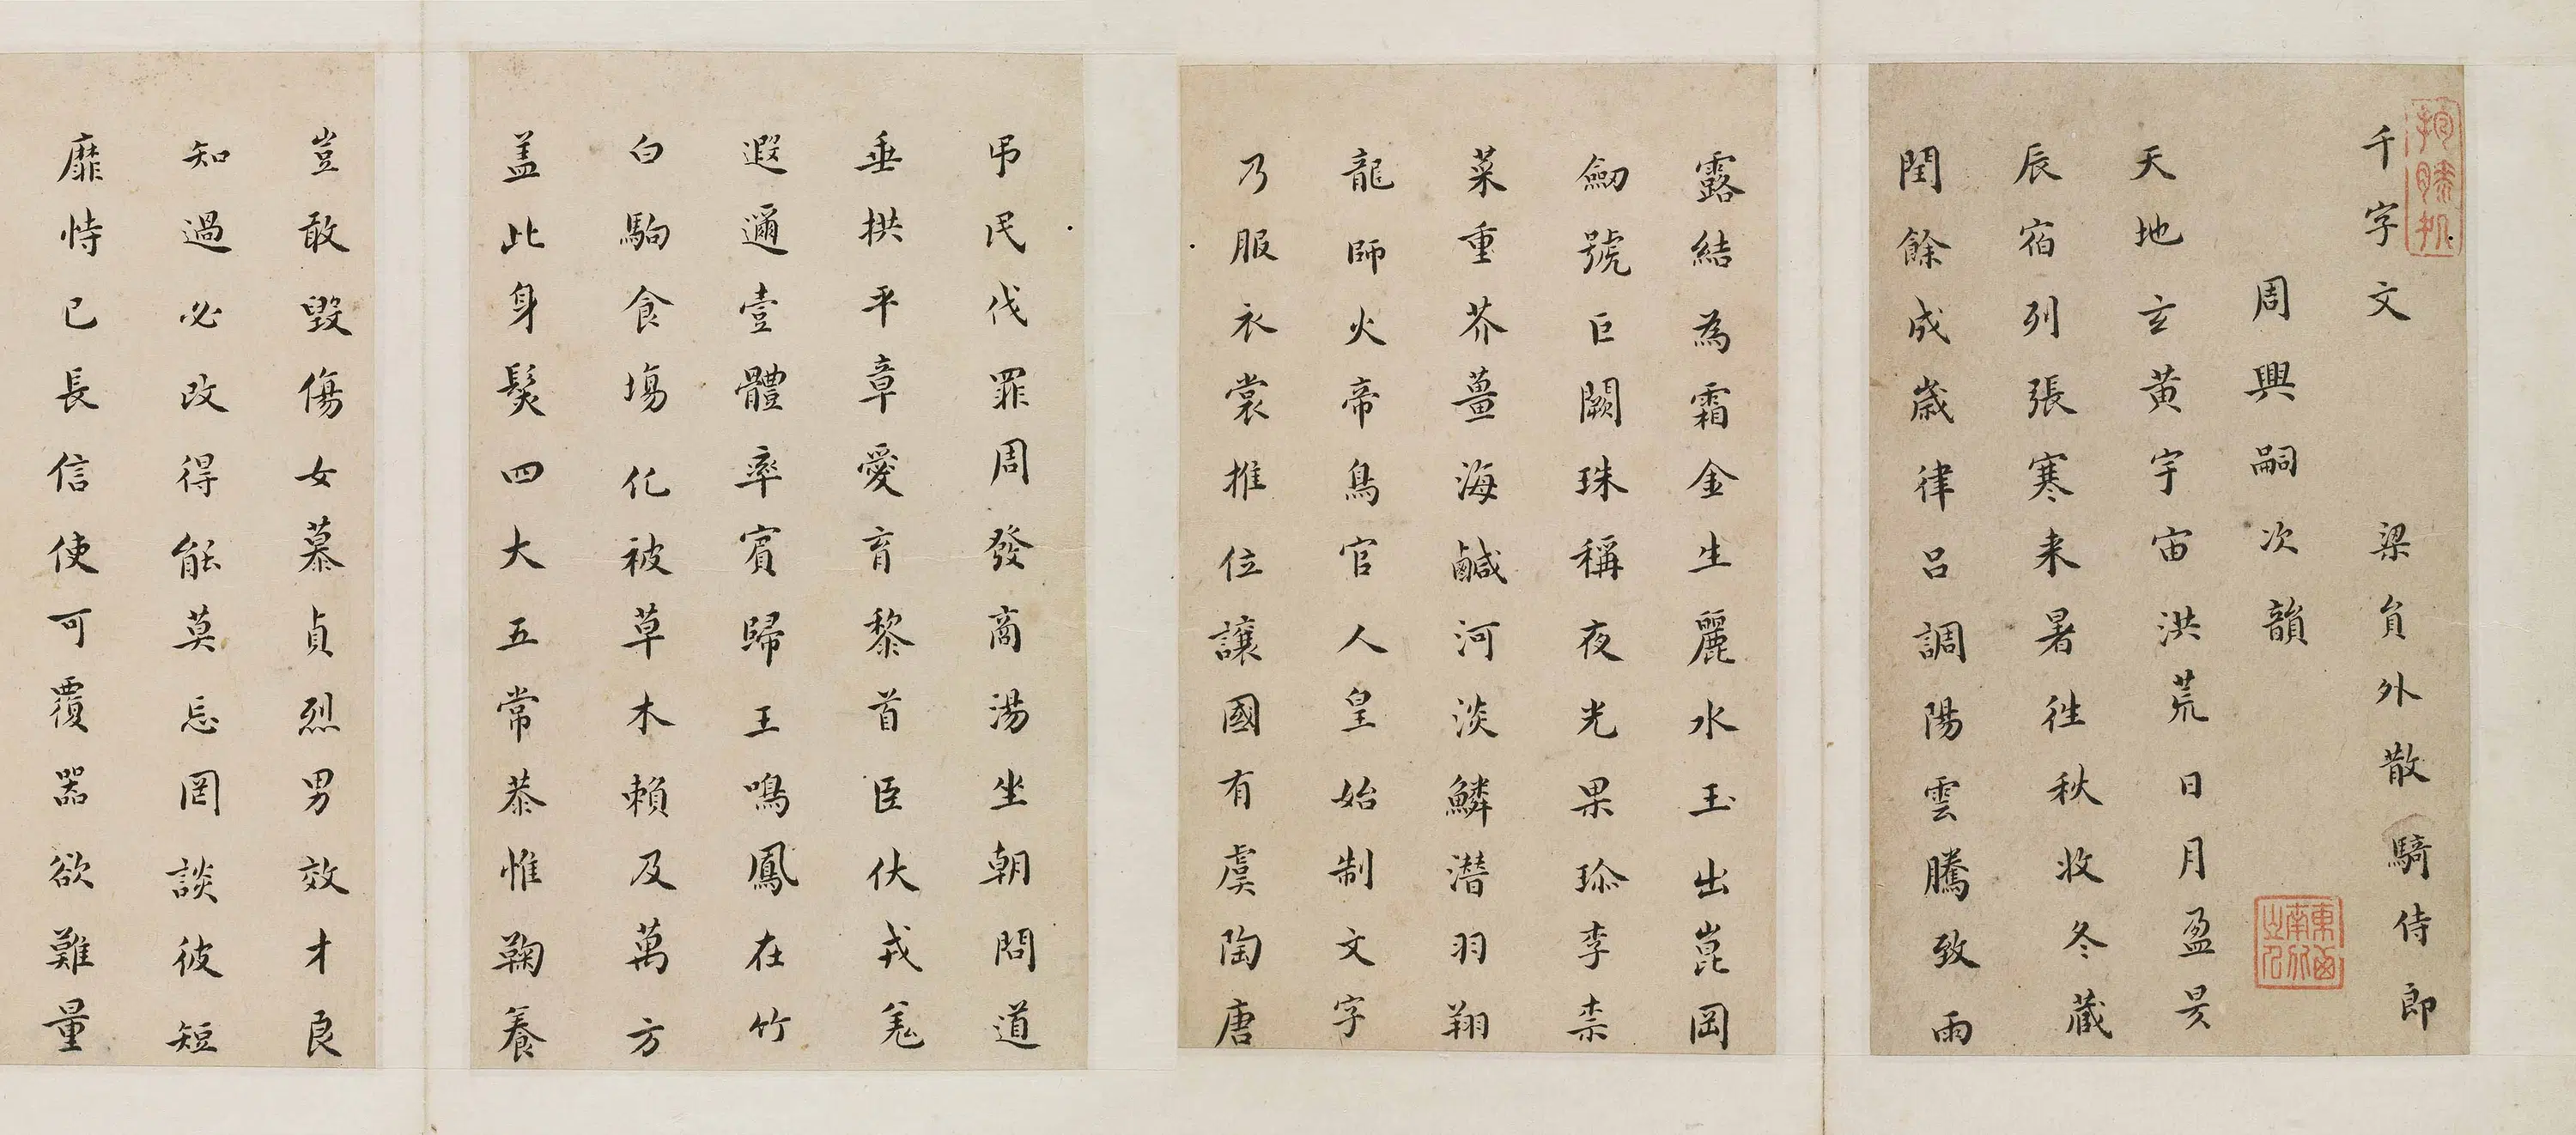 千字文 梁員外散騎侍郎
周興嗣次韻
天地玄黃宇宙洪荒日月盈昃
辰宿列張寒来暑徃秋收冬藏
閏餘成歲律呂調陽雲騰致雨
露結為霜金生麗水玉出崑岡
劒號巨闕珠稱夜光果珎李柰
菜重芥薑海鹹河淡鱗潛羽翔
龍師火帝鳥官人皇始制文字
乃服衣裳推位讓國有虞陶唐
弔民伐罪周發商湯坐朝問道
垂拱平章愛育黎首臣伏戎羌
遐邇壹體率賓歸王鳴鳳在竹
白駒食場化被草木賴及萬方
盖此身髮四大五常恭惟鞠養
豈敢毀傷女慕貞烈男效才良
知過必改得能莫忘罔談彼短
靡恃已長信使可覆器欲難量